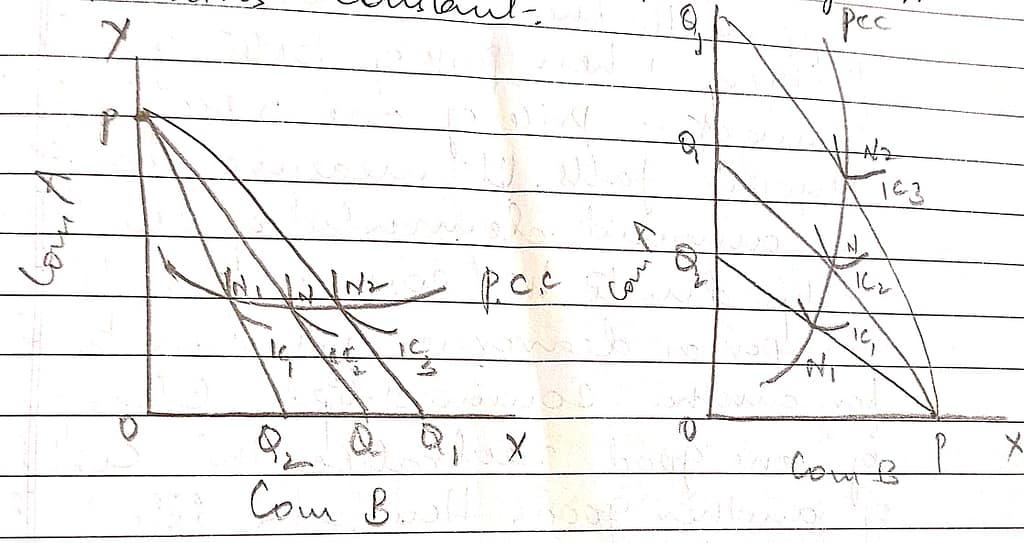 constant.
Y
P
Com A
N1
N
N2
P.C.C
IC1
IC2
IC3
O
Q2
Q
Q1
X
Com B
Q1
PCC
Q
N2
IC3
Com A
Q2
N
IC2
IC1
N1
O
P
X
Com B